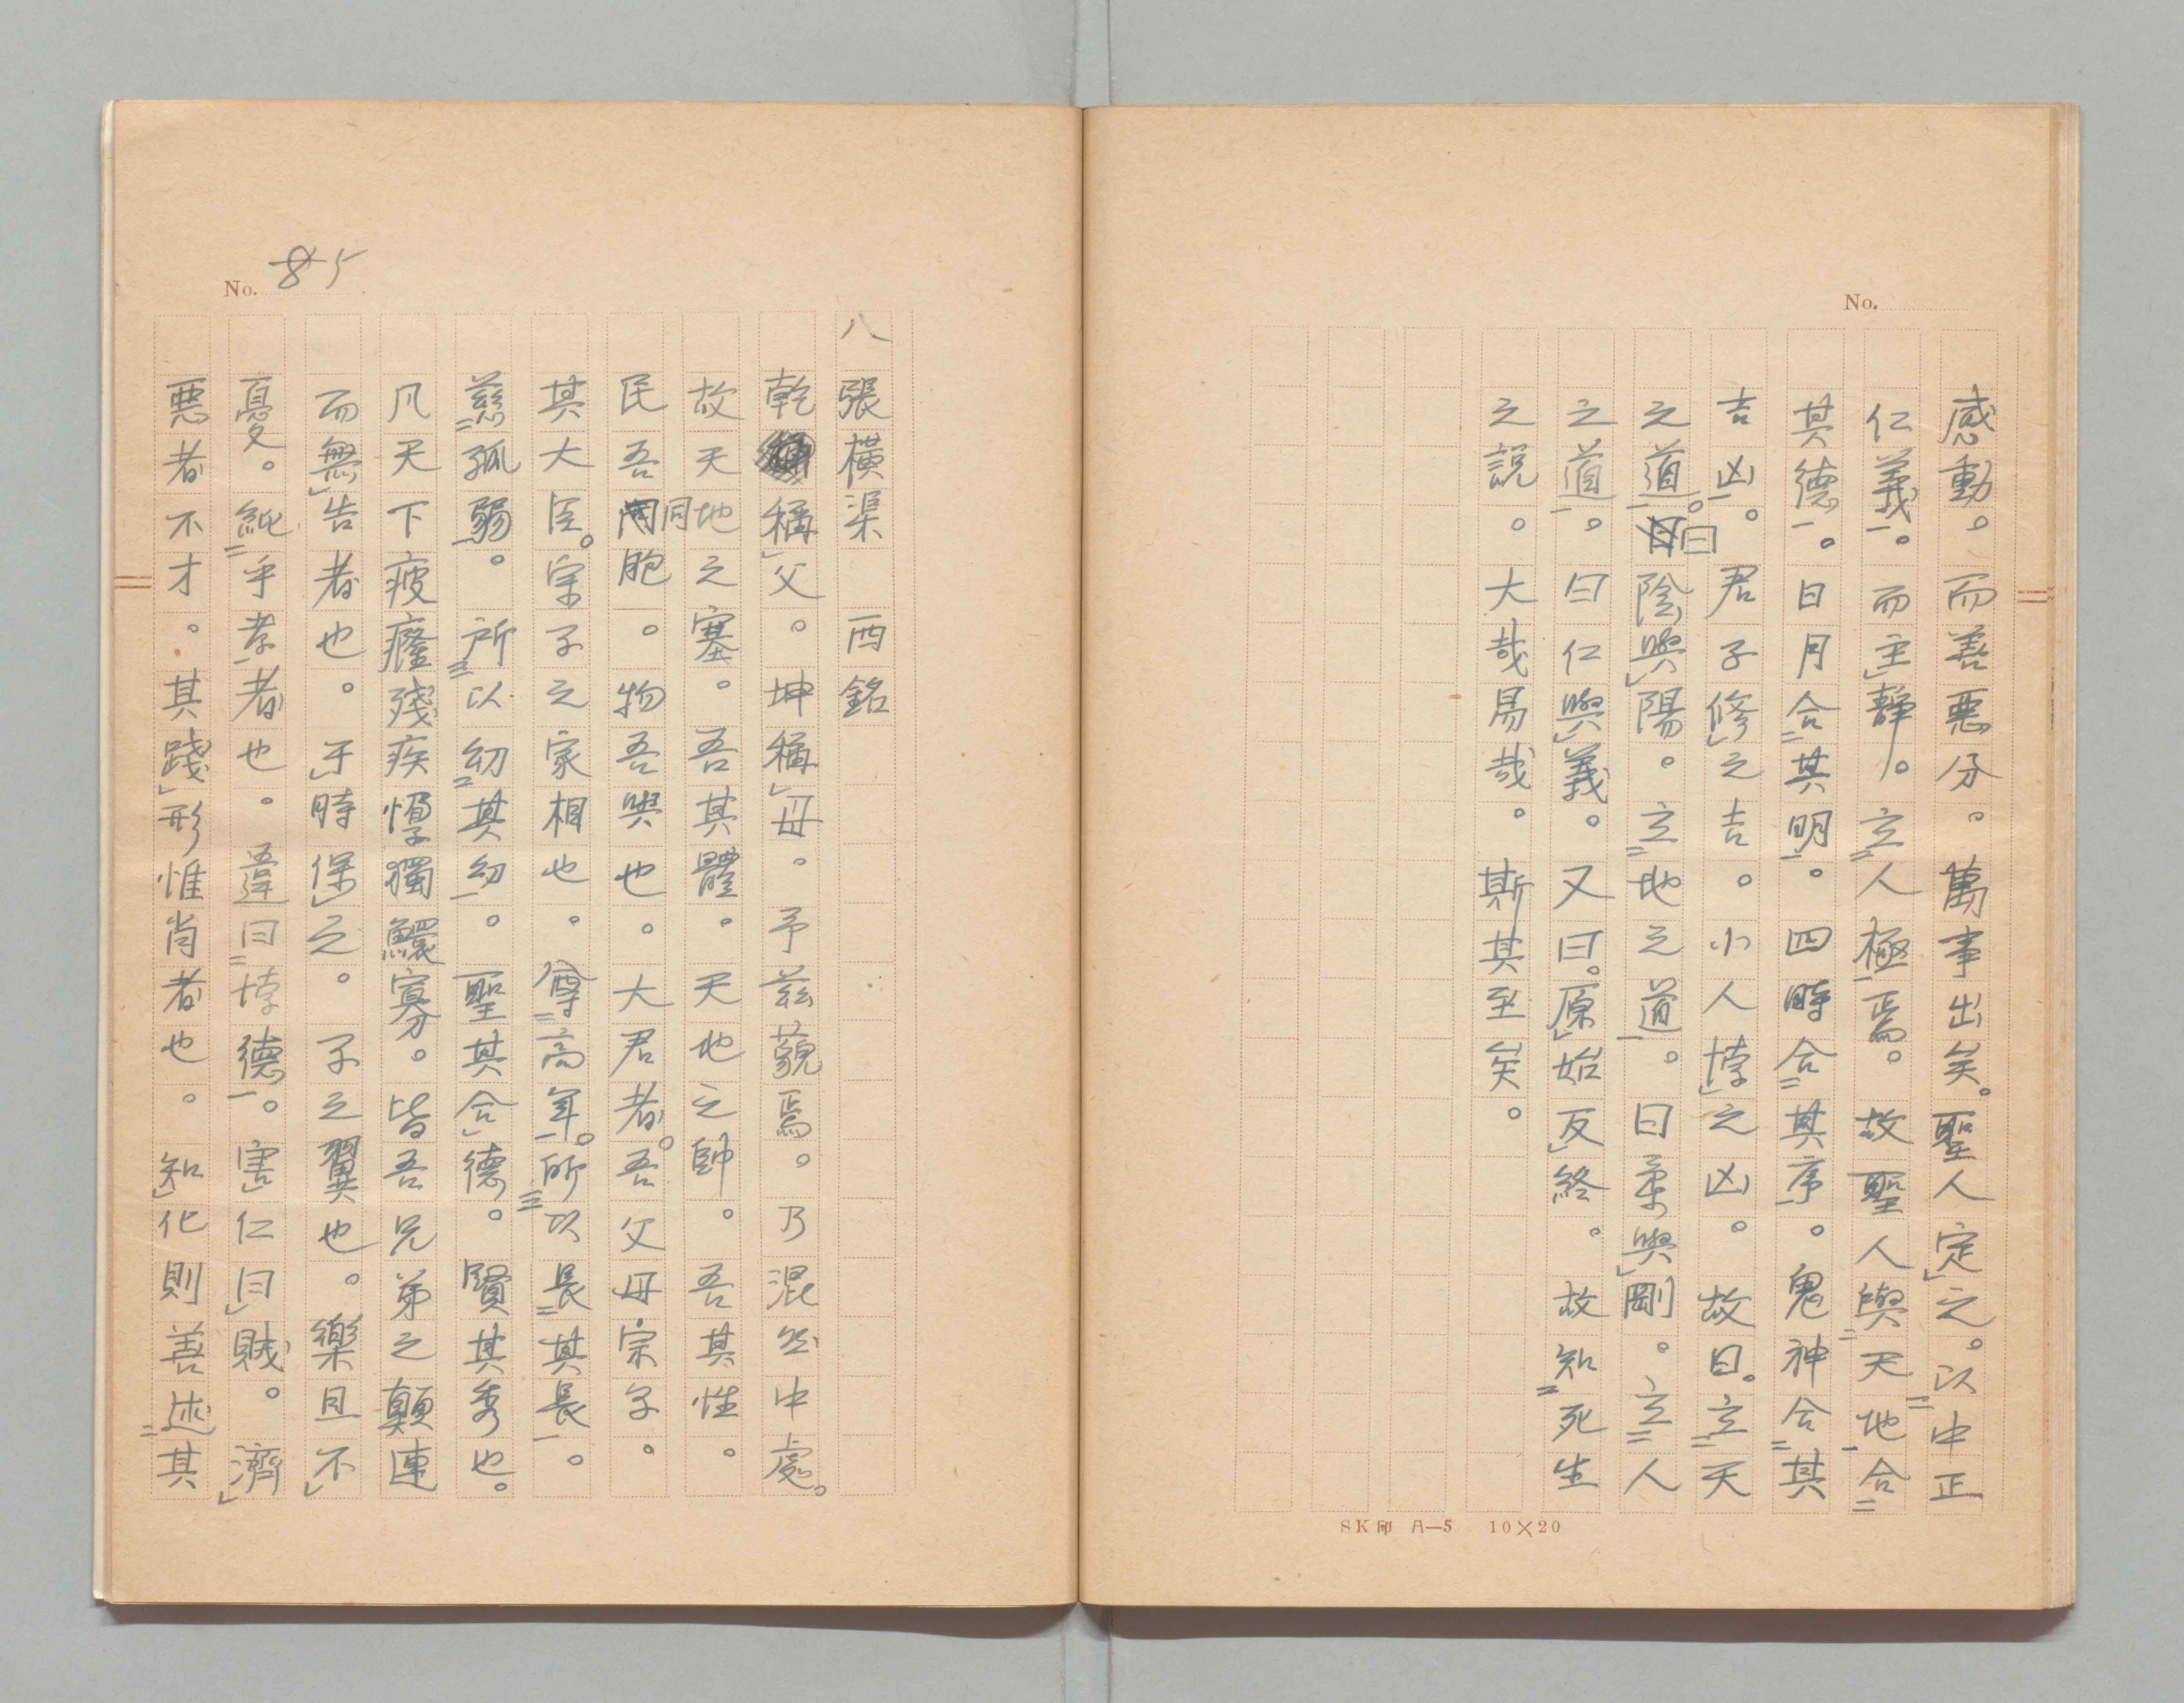 No.
感動。而善悪分。萬事出矣。聖人定之。以中正
仁義。而主静。立人極焉。故聖人與天地合
其德。日月合其明。四時合其序。鬼神合其
吉凶。君子修之吉。小人悖之凶。故曰。立天
之道。曰陰與陽。立地之道。曰柔與剛。立人
之道。曰仁與義。又曰。原始反終。故知死生
之説。大哉易哉。斯其至矣。
SK印 A—5 10×20
No. 85
八 張横渠 西銘
乾稱父。坤稱母。予茲藐焉。乃混然中處。
故天地之塞。吾其體。天地之帥。吾其性。
民吾同胞。物吾與也。大君者。吾父母宗子。
其大臣。宗子之家相也。尊高年。所以長其長。
慈孤弱。所以幼其幼。聖其合德。賢其秀也。
凡天下疲癃残疾惸獨鰥寡。皆吾兄弟之顛連
而無告者也。于時保之。子之翼也。樂且不
憂。純乎孝者也。違曰悖德。害仁曰賊。濟
悪者不才。其踐形惟肖者也。知化則善述其